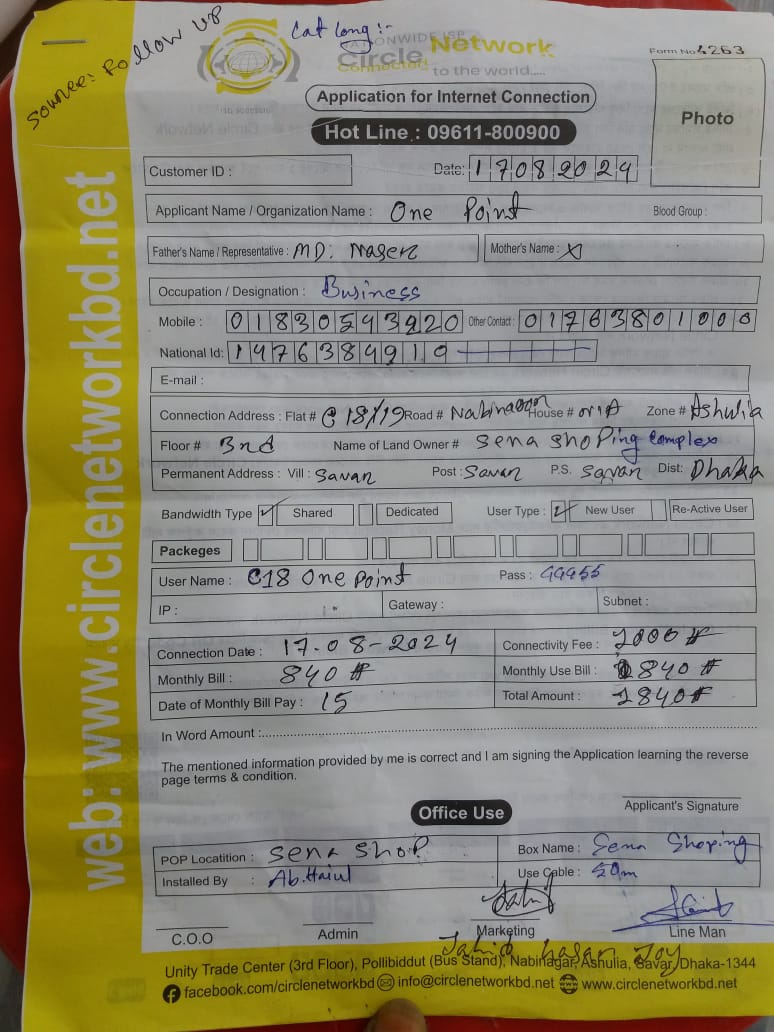 Source: Follow UP
Cat Long :-
NATIONWIDE ISP
Circle Network
Connected to the world.....
Form No 4263
Application for Internet Connection
Photo
Hot Line : 09611-800900
Customer ID :
Date: 17082024
Applicant Name / Organization Name : One Point
Blood Group :
Father's Name / Representative : MD: Naser
Mother's Name : X
Occupation / Designation : Business
Mobile : 01830543920 Other Contact : 01763801000
National Id: 1476384910
E-mail :
Connection Address : Flat # C 18/19 Road # Nabinagar House # Zone # Ashulia
Floor # 3rd Name of Land Owner # Sena Shoping Complex
Permanent Address : Vill : Savar Post : Savar P.S. Savar Dist: Dhaka
Bandwidth Type ✓ Shared Dedicated User Type : ✓ New User Re-Active User
Packeges
User Name : C18 One Point Pass : 44455
IP : Gateway : Subnet :
Connection Date : 17-08-2024 Connectivity Fee : 2000 #
Monthly Bill : 840 # Monthly Use Bill : 840 #
Date of Monthly Bill Pay : 15 Total Amount : 2840 #
In Word Amount :
The mentioned information provided by me is correct and I am signing the Application learning the reverse
page terms & condition.
Applicant's Signature
Office Use
POP Locatition : Sena Shop Box Name : Sena Shoping
Installed By : Ab. Haiul Use Cable : 50m
C.O.O Admin Marketing Line Man
Jahid Hasan Joy
Unity Trade Center (3rd Floor), Pollibiddut (Bus Stand), Nabinagar, Ashulia, Savar, Dhaka-1344
facebook.com/circlenetworkbd info@circlenetworkbd.net www.circlenetworkbd.net
web: www.circlenetworkbd.net